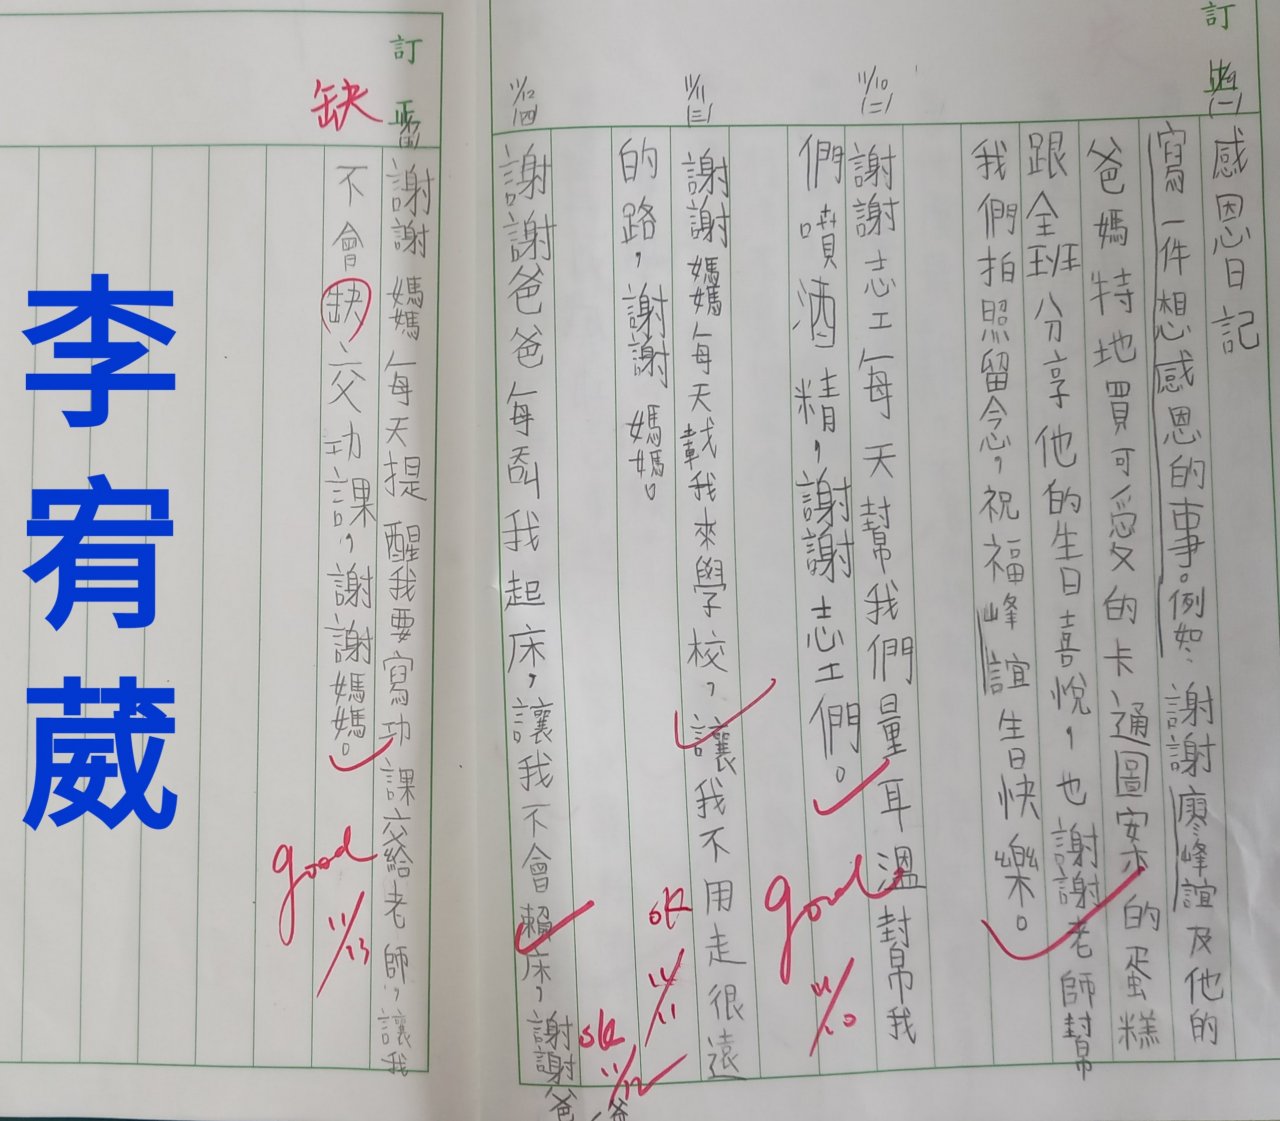 訂
11/9
(一)
感恩日記
寫一件想感恩的事。例如:謝謝廖峰誼及他的
爸媽特地買可愛的卡通圖案的蛋糕
跟全班分享他的生日喜悅,也謝謝老師幫
我們拍照留念,祝福峰誼生日快樂。
11/10
(二)
謝謝志工每天幫我們量耳溫幫我
們噴酒精,謝謝志工們。
good
11/10
11/11
(三)
謝謝媽媽每天載我來學校,讓我不用走很遠
的路,謝謝媽媽。
ok
11/11
11/12
(四)
謝謝爸爸每叫我起床,讓我不會賴床,謝謝爸爸
ok
11/12
訂
謝謝媽媽每天提醒我要寫功課交給老師,讓我
缺
不會缺交功課,謝謝媽媽。
good
11/13
李宥葳